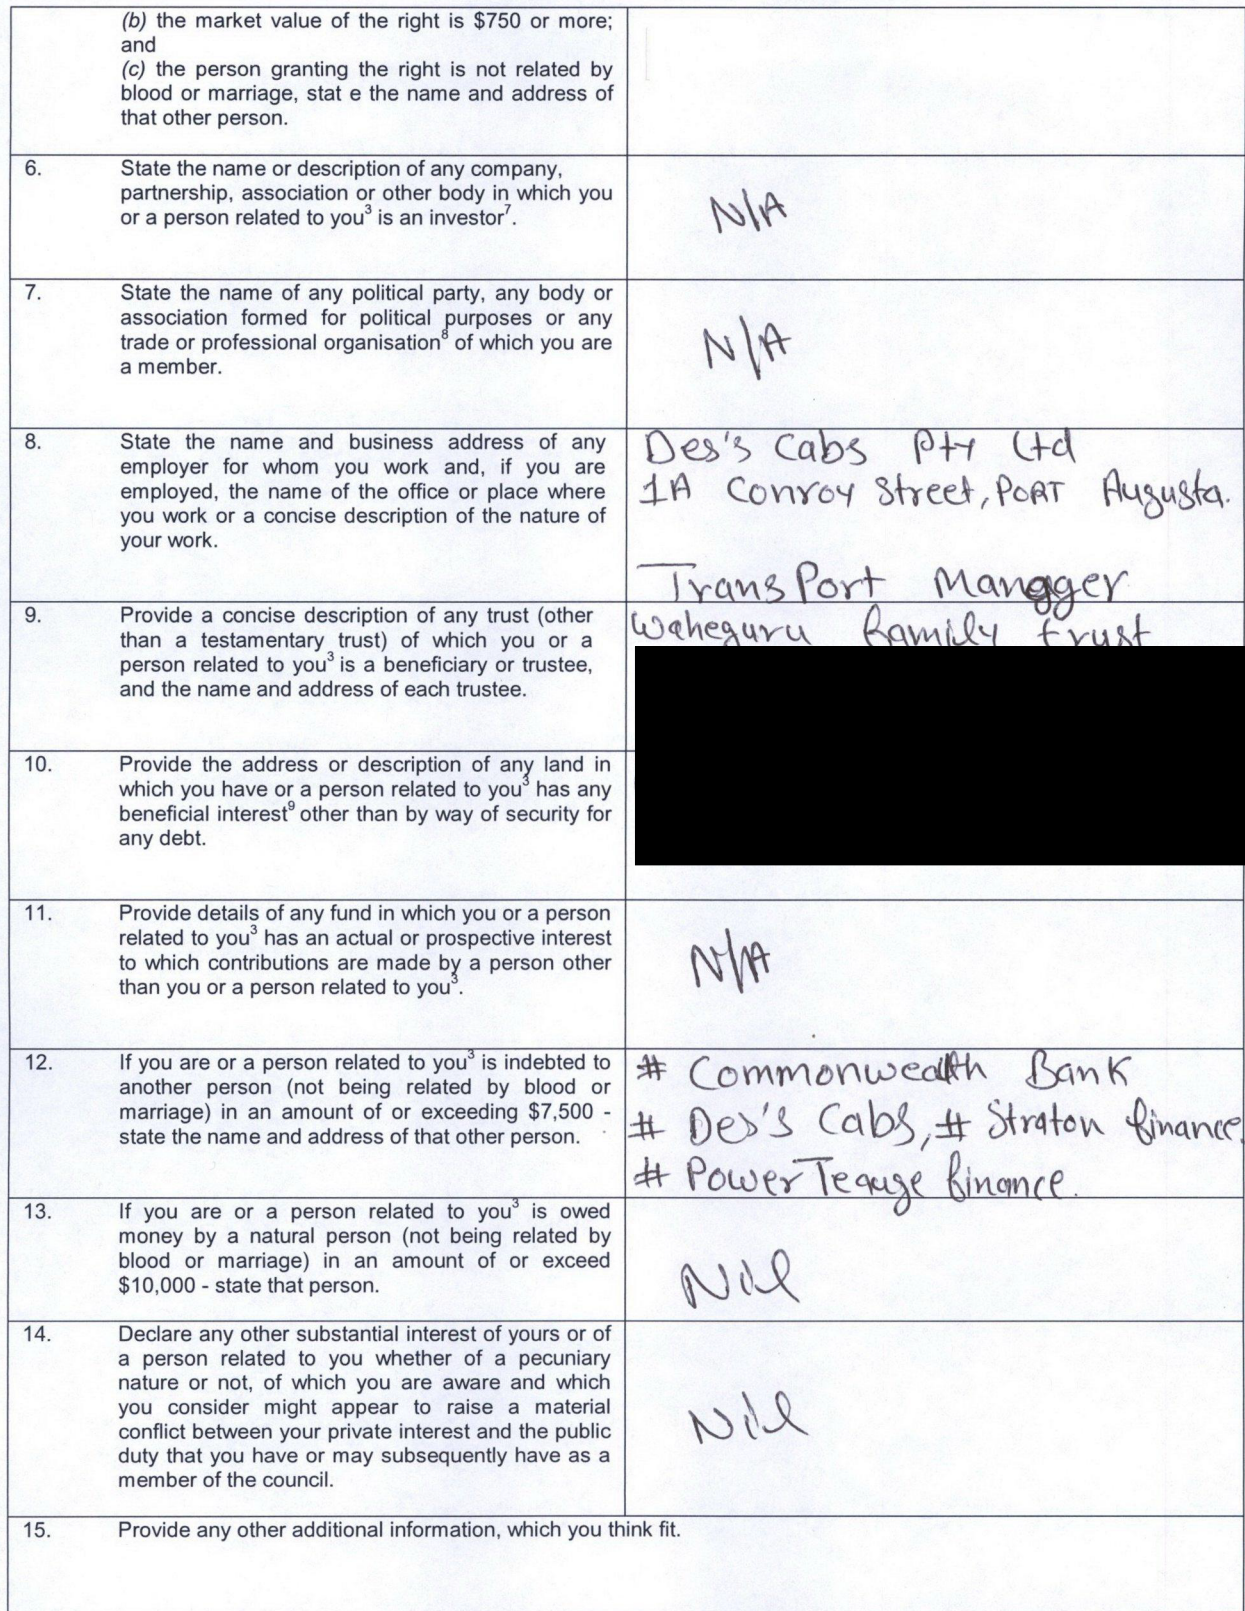 (b) the market value of the right is $750 or more;
and
(c) the person granting the right is not related by
blood or marriage, stat e the name and address of
that other person.
6. State the name or description of any company,
partnership, association or other body in which you
or a person related to you³ is an investor⁷.
N/A
7. State the name of any political party, any body or
association formed for political purposes or any
trade or professional organisation⁸ of which you are
a member.
N/A
8. State the name and business address of any
employer for whom you work and, if you are
employed, the name of the office or place where
you work or a concise description of the nature of
your work.
Des's Cabs Pty Ltd
1A Conroy Street, PORT Augusta.
TransPort Mangger
9. Provide a concise description of any trust (other
than a testamentary trust) of which you or a
person related to you³ is a beneficiary or trustee,
and the name and address of each trustee.
Waheguru family trust
10. Provide the address or description of any land in
which you have or a person related to you³ has any
beneficial interest⁹ other than by way of security for
any debt.
11. Provide details of any fund in which you or a person
related to you³ has an actual or prospective interest
to which contributions are made by a person other
than you or a person related to you³.
N/A
12. If you are or a person related to you³ is indebted to
another person (not being related by blood or
marriage) in an amount of or exceeding $7,500 -
state the name and address of that other person.
# Commonwealth Bank
# Des's Cabs, # Straton finance.
# Power Teauge finance.
13. If you are or a person related to you³ is owed
money by a natural person (not being related by
blood or marriage) in an amount of or exceed
$10,000 - state that person.
Nil
14. Declare any other substantial interest of yours or of
a person related to you whether of a pecuniary
nature or not, of which you are aware and which
you consider might appear to raise a material
conflict between your private interest and the public
duty that you have or may subsequently have as a
member of the council.
Nil
15. Provide any other additional information, which you think fit.